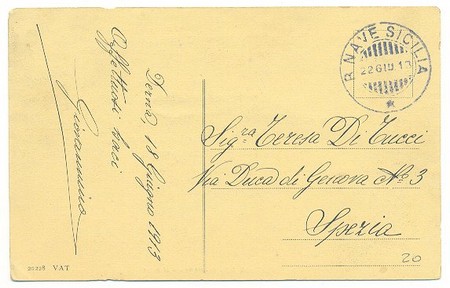 Derna, 18 Giugno 1913
Affettuosi baci
Giovannino
R. NAVE SICILIA
22 GIU. 13
Sig.ra Teresa Di Tucci
Via Duca di Genova No. 3
Spezia
20
VAT